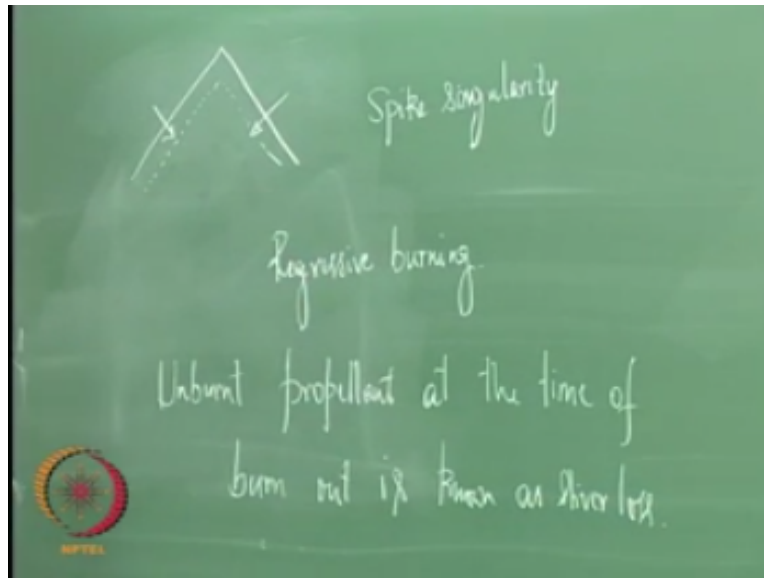 Spike singularity
Regressive burning
Unburnt propellant at the time of
burn out is known as sliver loss.
NPTEL